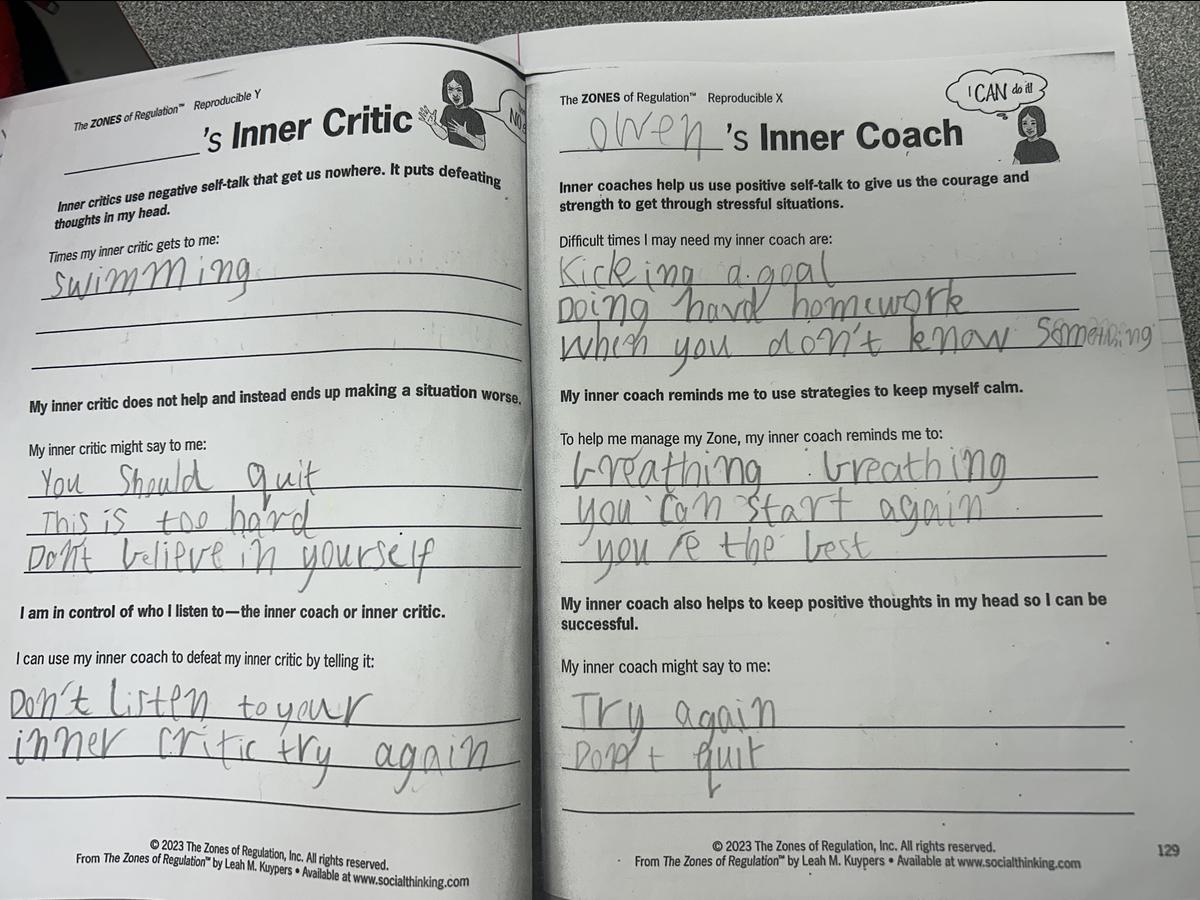 The ZONES of Regulation™ Reproducible Y
's Inner Critic
NO
Inner critics use negative self-talk that get us nowhere. It puts defeating
thoughts in my head.
Times my inner critic gets to me:
swimming
My inner critic does not help and instead ends up making a situation worse.
My inner critic might say to me:
You Should quit
This is too hard
Don't believe in yourself
I am in control of who I listen to—the inner coach or inner critic.
I can use my inner coach to defeat my inner critic by telling it:
Don't listen to your
inner critic try again
© 2023 The Zones of Regulation, Inc. All rights reserved.
From The Zones of Regulation™ by Leah M. Kuypers • Available at www.socialthinking.com
The ZONES of Regulation™ Reproducible X
I CAN do it!
owen 's Inner Coach
Inner coaches help us use positive self-talk to give us the courage and
strength to get through stressful situations.
Difficult times I may need my inner coach are:
Kicking a goal
Doing hard homework
When you don't know Something
My inner coach reminds me to use strategies to keep myself calm.
To help me manage my Zone, my inner coach reminds me to:
breathing breathing
you can start again
you're the best
My inner coach also helps to keep positive thoughts in my head so I can be
successful.
My inner coach might say to me:
Try again
Don't quit
© 2023 The Zones of Regulation, Inc. All rights reserved.
From The Zones of Regulation™ by Leah M. Kuypers • Available at www.socialthinking.com
129